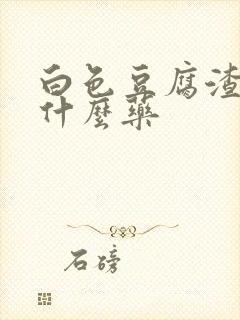 白色豆腐渣
什麼藥
石磅